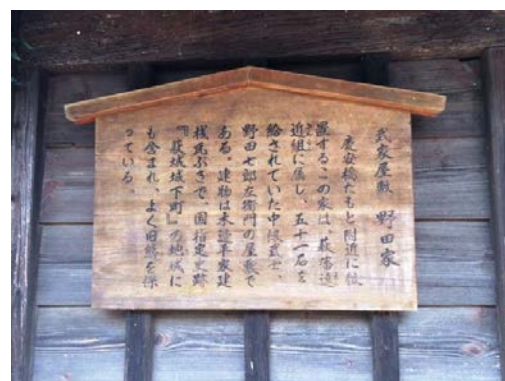 武家屋敷 野田家
慶安橋たもと附近に位
置するこの家は、萩藩遠
近組に属し、五十一石を
給されていた中級武士、
野田七郎左衛門の屋敷で
ある。建物は木造平家建
桟瓦ぶきで、国指定史跡
『萩城城下町』の地域に
も含まれ、よく旧態を保
っている。